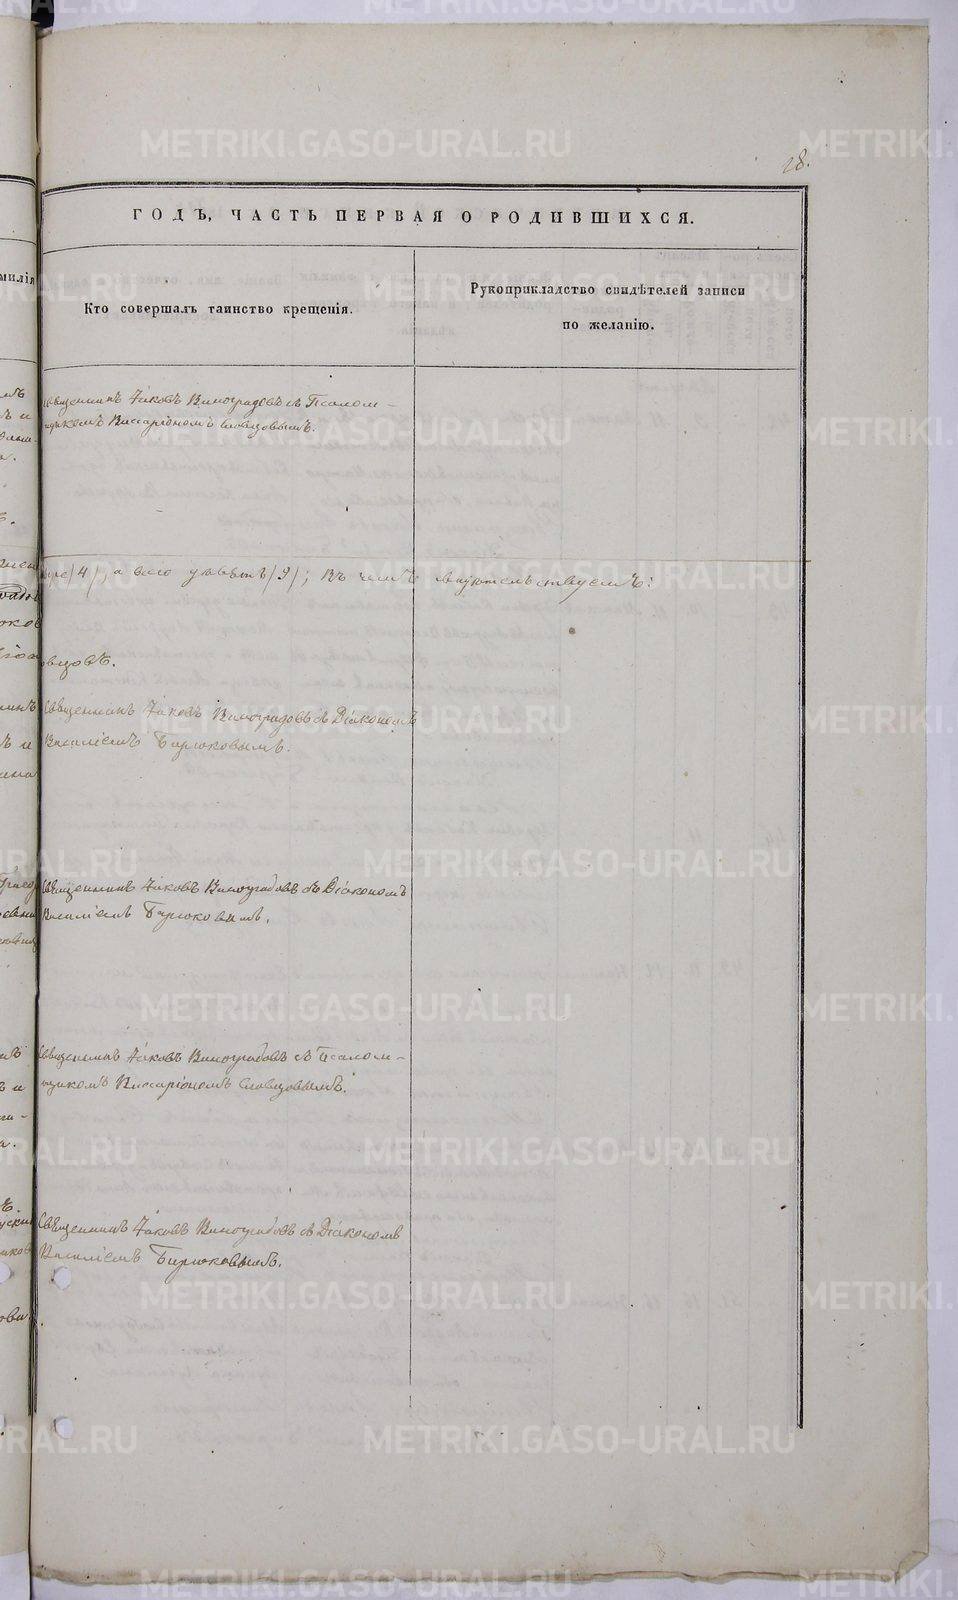 28.
ГОДЪ, ЧАСТЬ ПЕРВАЯ О РОДИВШИХСЯ.
милія
Кто совершалъ таинство крещенія.
Рукоприкладство свидѣтелей записи
по желанію.
Священникъ Іаковъ Виноградовъ съ Псалом-
щикомъ Виссаріономъ Словцовымъ.
ыре /4/, а всего девять /9/; въ чемъ и свидѣтельствуемъ:
овцовъ.
Священникъ Іаковъ Виноградовъ съ Діакономъ
Василіемъ Бирюковымъ.
Священникъ Іаковъ Виноградовъ съ Діакономъ
Василіемъ Бирюковымъ.
Священникъ Іаковъ Виноградовъ съ Псалом-
щикомъ Виссаріономъ Словцовымъ.
Священникъ Іаковъ Виноградовъ съ Діакономъ
Василіемъ Бирюковымъ.
METRIKI.GASO-URAL.RU